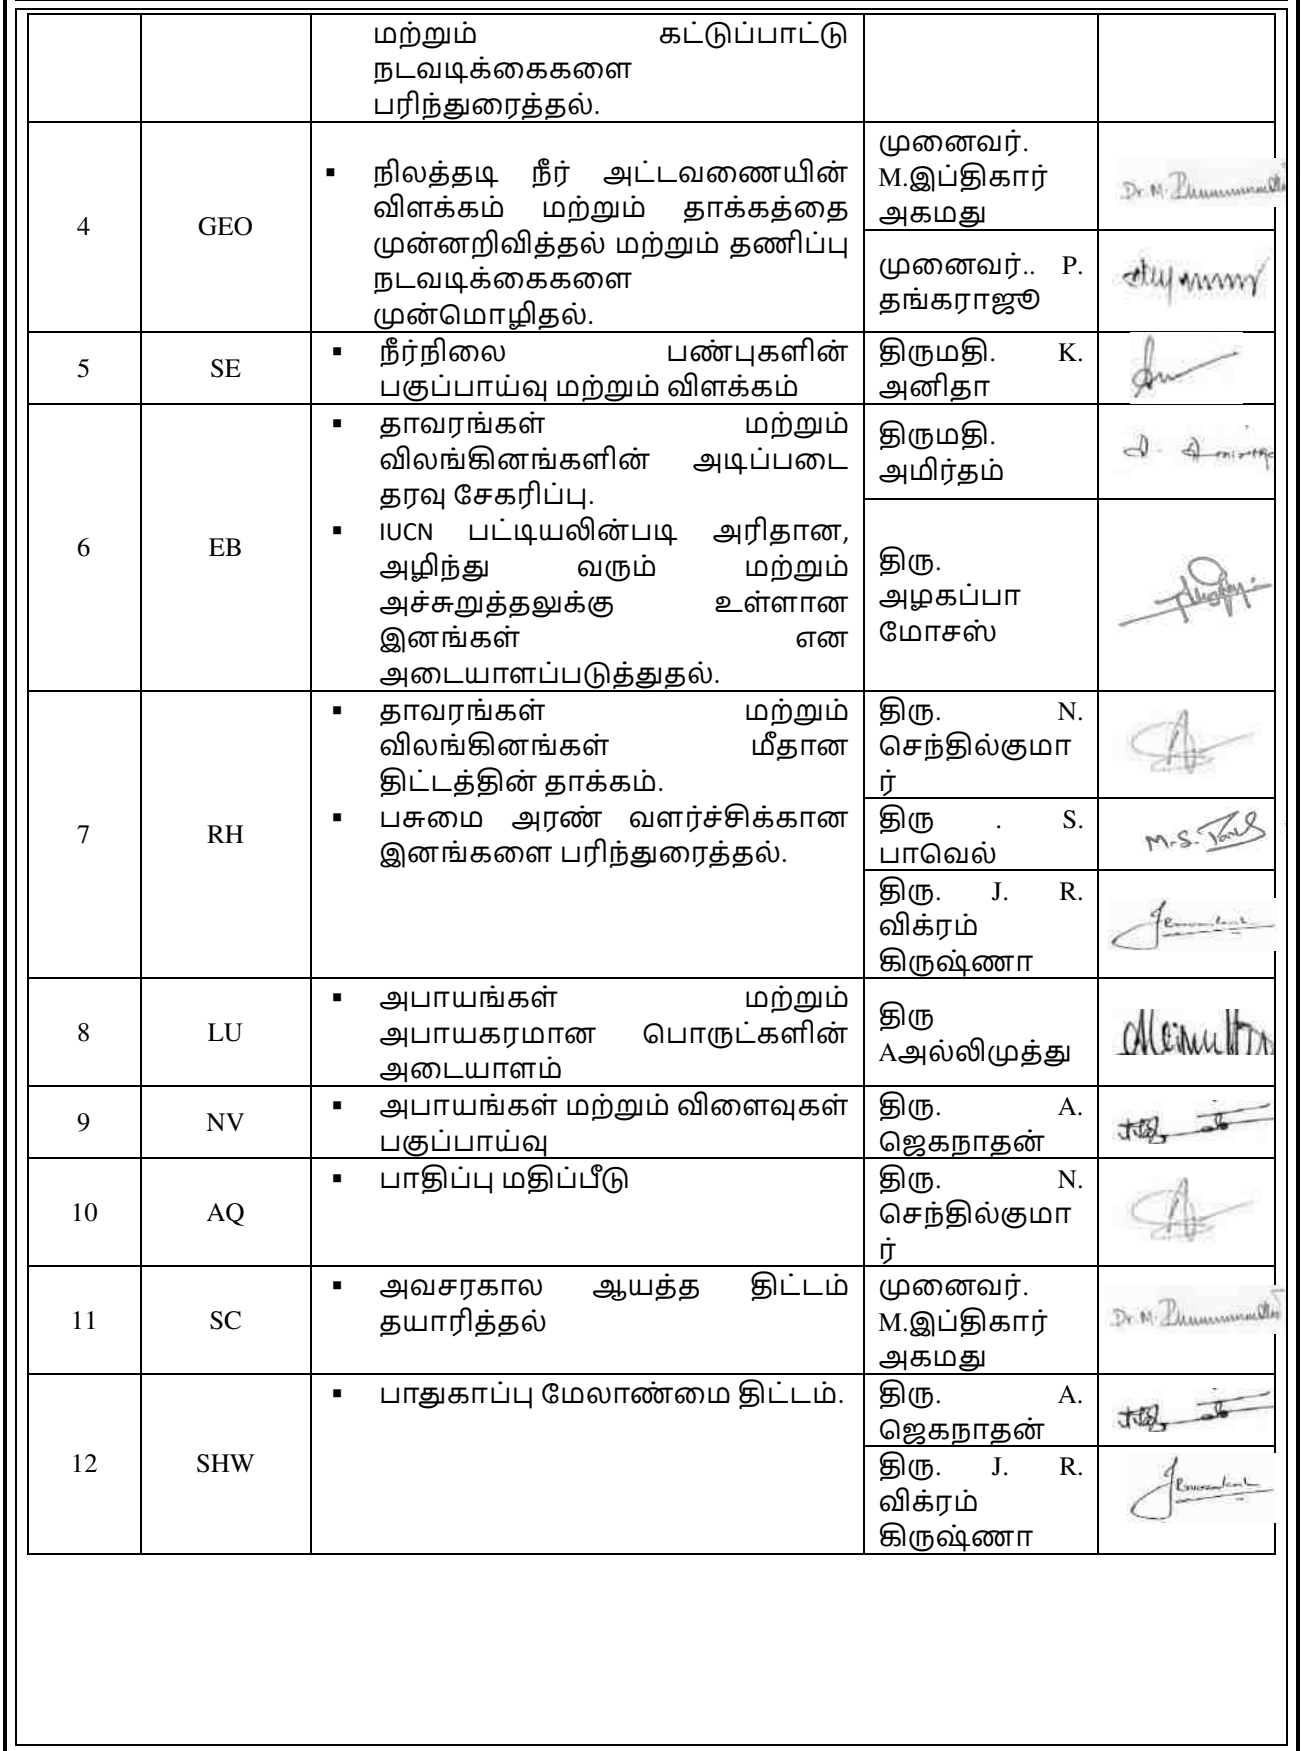 மற்றும் கட்டுப்பாட்டு
நடவடிக்கைகளை
பரிந்துரைத்தல்.
4
GEO
▪ நிலத்தடி நீர் அட்டவணையின்
விளக்கம் மற்றும் தாக்கத்தை
முன்னறிவித்தல் மற்றும் தணிப்பு
நடவடிக்கைகளை
முன்மொழிதல்.
முனைவர்.
M.இப்திகார்
அகமது
Dr. M.
முனைவர்.. P.
தங்கராஜூ
5
SE
▪ நீர்நிலை பண்புகளின்
பகுப்பாய்வு மற்றும் விளக்கம்
திருமதி. K.
அனிதா
6
EB
▪ தாவரங்கள் மற்றும்
விலங்கினங்களின் அடிப்படை
தரவு சேகரிப்பு.
▪ IUCN பட்டியலின்படி அரிதான,
அழிந்து வரும் மற்றும்
அச்சுறுத்தலுக்கு உள்ளான
இனங்கள் என
அடையாளப்படுத்துதல்.
திருமதி.
அமிர்தம்
திரு.
அழகப்பா
மோசஸ்
7
RH
▪ தாவரங்கள் மற்றும்
விலங்கினங்கள் மீதான
திட்டத்தின் தாக்கம்.
▪ பசுமை அரண் வளர்ச்சிக்கான
இனங்களை பரிந்துரைத்தல்.
திரு. N.
செந்தில்குமா
ர்
திரு . S.
பாவெல்
M.S.
திரு. J. R.
விக்ரம்
கிருஷ்ணா
8
LU
▪ அபாயங்கள் மற்றும்
அபாயகரமான பொருட்களின்
அடையாளம்
திரு
Aஅல்லிமுத்து
9
NV
▪ அபாயங்கள் மற்றும் விளைவுகள்
பகுப்பாய்வு
திரு. A.
ஜெகநாதன்
10
AQ
▪ பாதிப்பு மதிப்பீடு
திரு. N.
செந்தில்குமா
ர்
11
SC
▪ அவசரகால ஆயத்த திட்டம்
தயாரித்தல்
முனைவர்.
M.இப்திகார்
அகமது
Dr. M.
12
SHW
▪ பாதுகாப்பு மேலாண்மை திட்டம்.
திரு. A.
ஜெகநாதன்
திரு. J. R.
விக்ரம்
கிருஷ்ணா